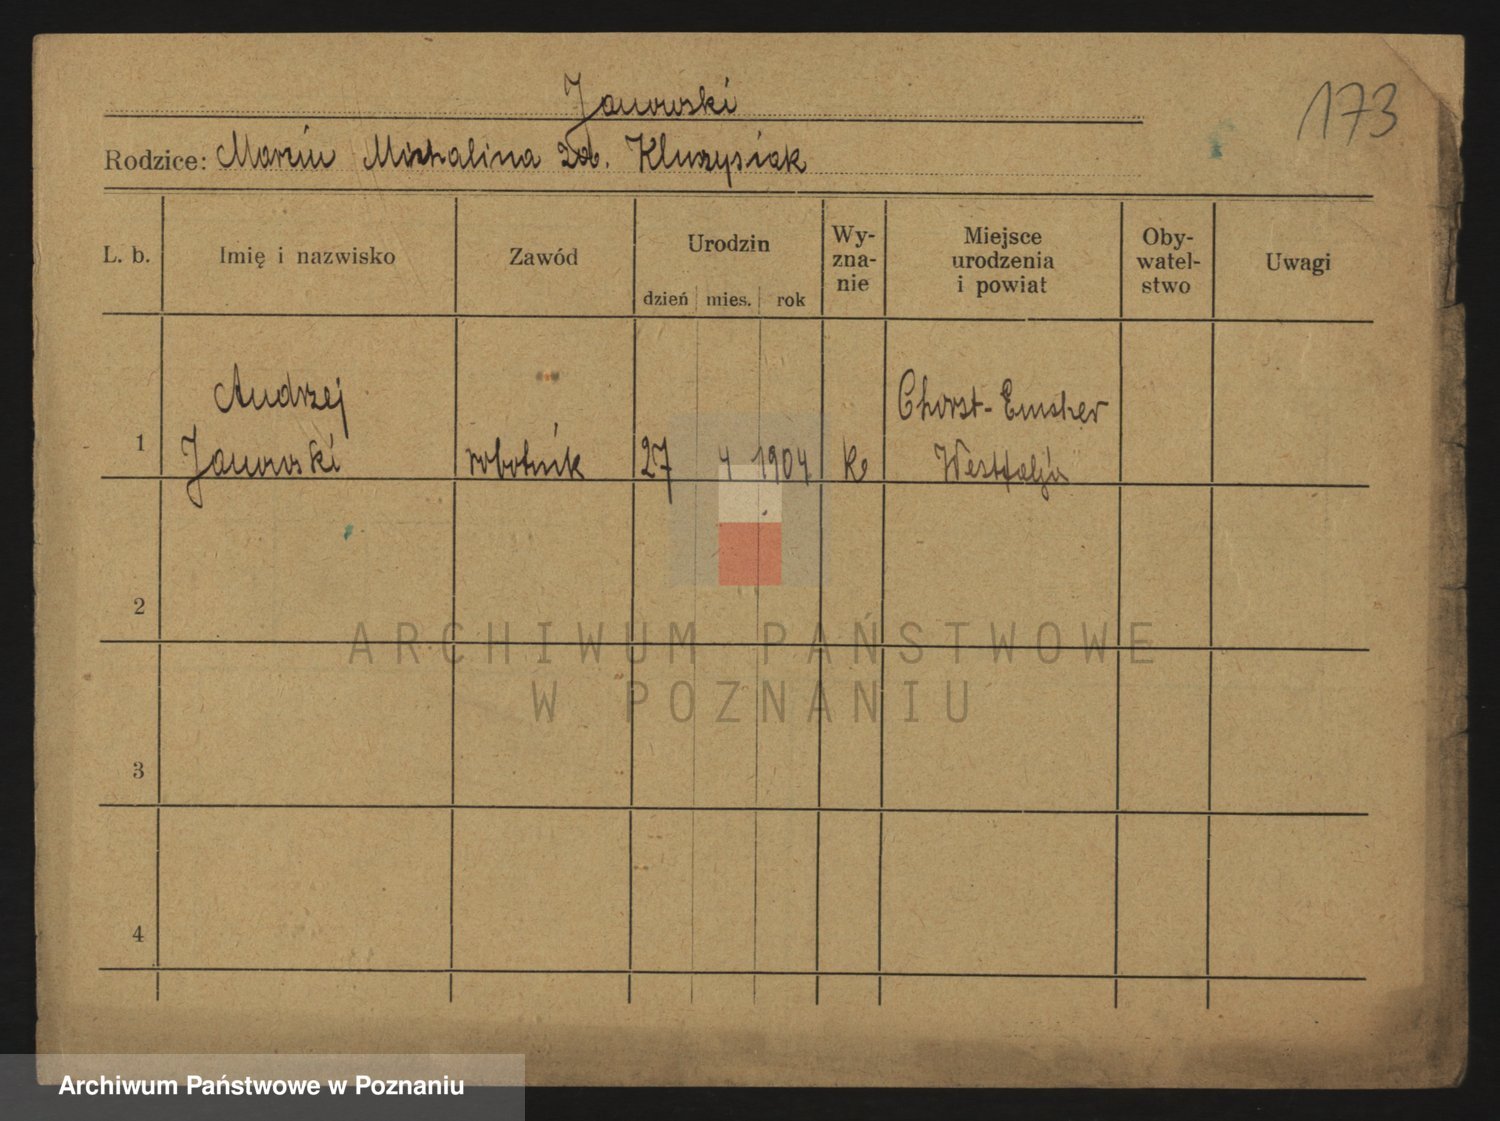 Janowski
173
Rodzice: Marcin Michalina zd. Kluszysiak
L. b. Imię i nazwisko Zawód Urodzin dzień mies. rok Wy-zna-nie Miejsce urodzenia i powiat Oby-watel-stwo Uwagi
Andrzej Chorst-Emsher
1 Janowski robotnik 27 4 1904 k Westfalja
2
ARCHIWUM PAŃSTWOWE
W POZNANIU
3
4
Archiwum Państwowe w Poznaniu